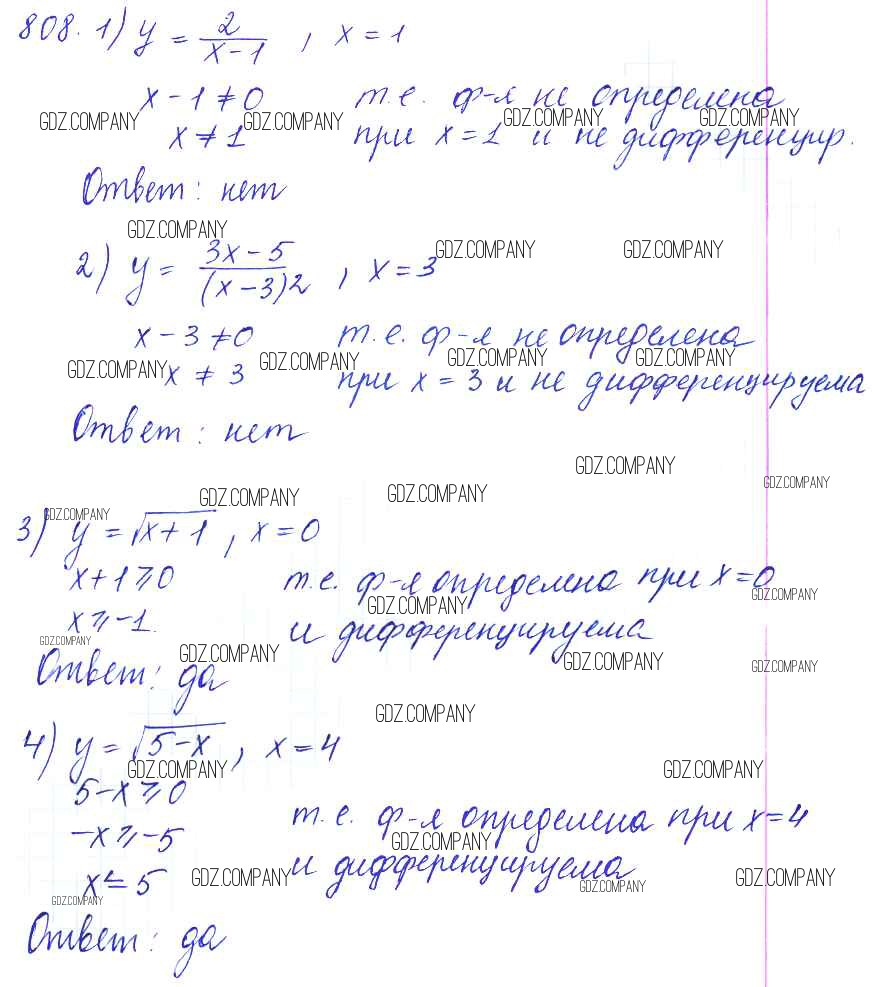 808. 1) y = 2/(x-1) , x = 1
x - 1 ≠ 0 т.е. ф-я не определена
GDZ.COMPANY GDZ.COMPANY GDZ.COMPANY GDZ.COMPANY
x ≠ 1 при x = 1 и не дифференцир.
Ответ: нет
GDZ.COMPANY
2) y = (3x-5)/(x-3)2 , x = 3
GDZ.COMPANY GDZ.COMPANY
x - 3 ≠ 0 т.е. ф-я не определена
GDZ.COMPANY GDZ.COMPANY GDZ.COMPANY GDZ.COMPANY
x ≠ 3 при x = 3 и не дифференцируема
Ответ: нет
GDZ.COMPANY
GDZ.COMPANY
GDZ.COMPANY GDZ.COMPANY
GDZ.COMPANY
3) y = √(x+1) , x = 0
x+1 ⩾ 0 т.е. ф-я определена при x = 0
GDZ.COMPANY GDZ.COMPANY
x ⩾ -1. и дифференцируема
GDZ.COMPANY
GDZ.COMPANY GDZ.COMPANY GDZ.COMPANY
Ответ: да
GDZ.COMPANY
4) y = √(5-x) , x = 4
GDZ.COMPANY GDZ.COMPANY
5-x ⩾ 0
т.е. ф-я определена при x = 4
-x ⩾ -5
GDZ.COMPANY
и дифференцируема
x ≤ 5
GDZ.COMPANY GDZ.COMPANY GDZ.COMPANY
GDZ.COMPANY
Ответ: да